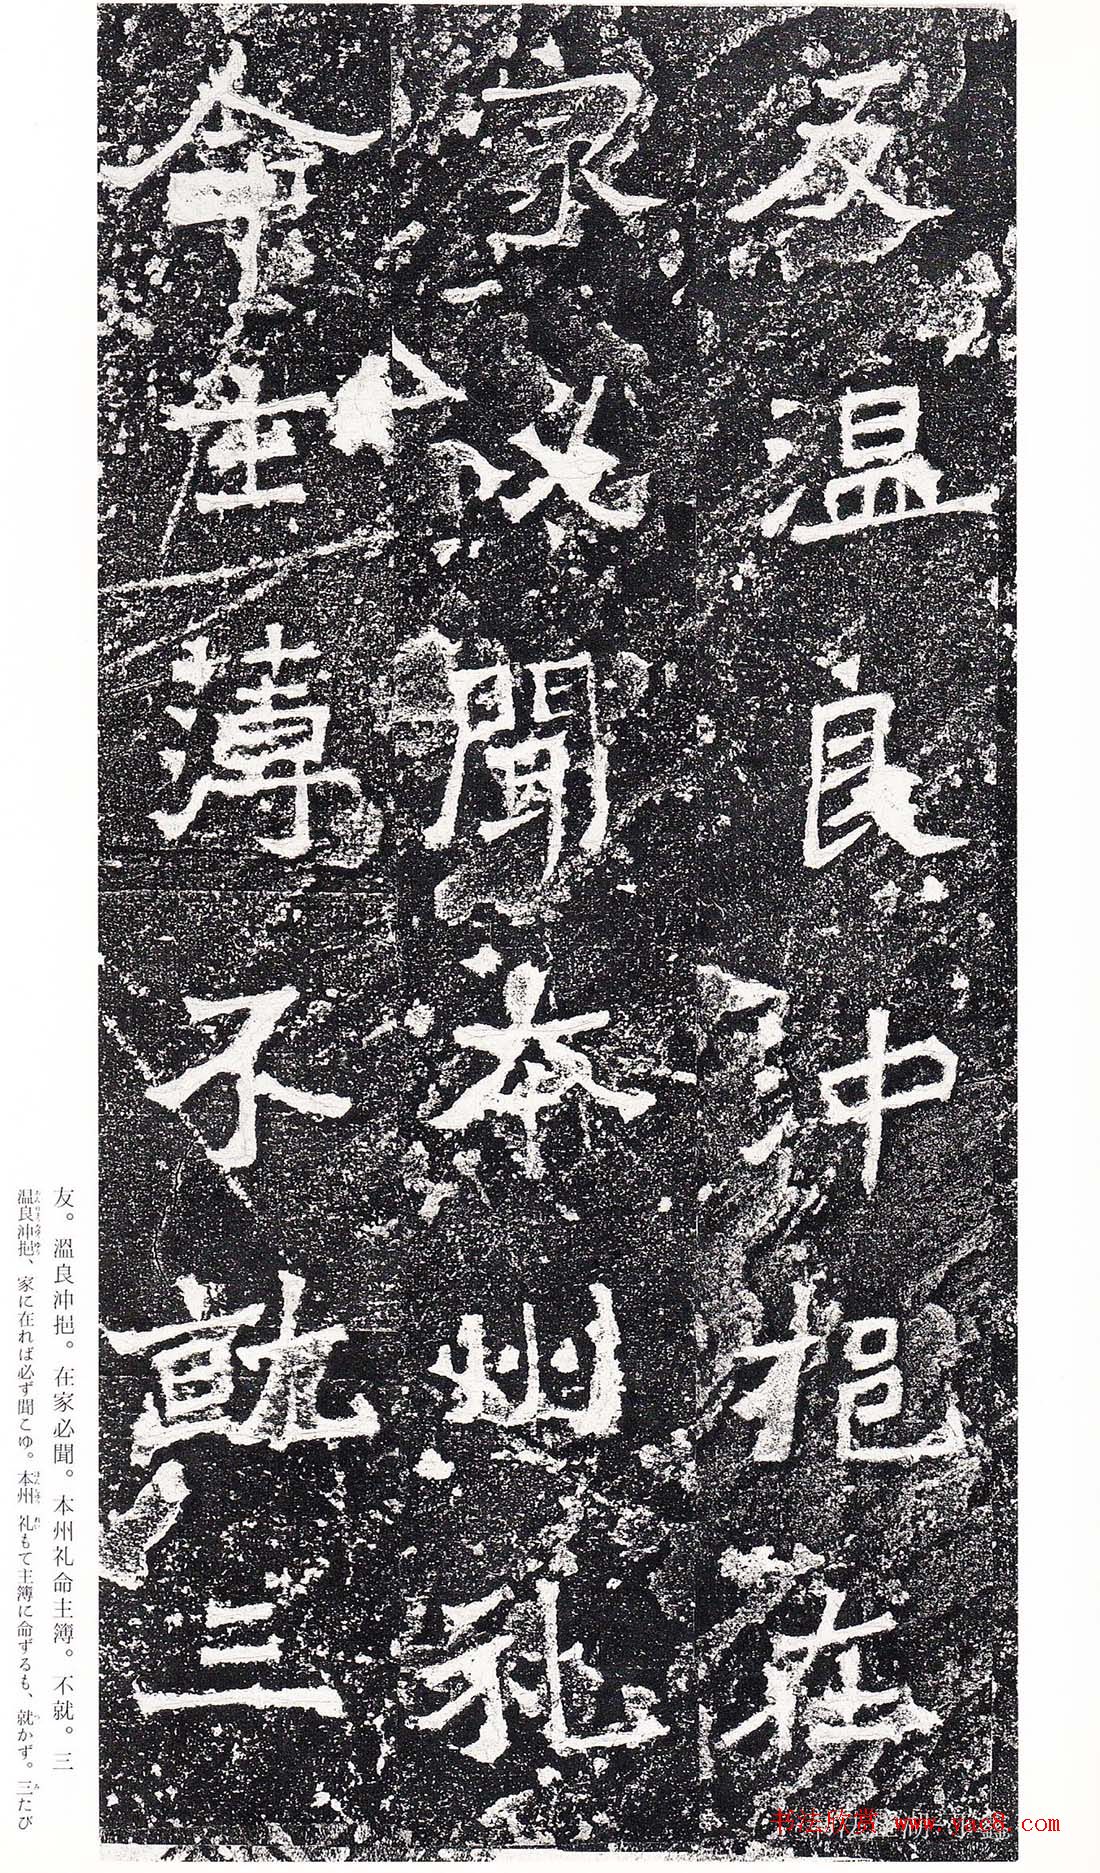 友温良沖挹在
家必聞本州礼
命主薄不就三
友。溫良沖挹。在家必聞。本州礼命主簿。不就。三
温良沖挹、家に在れば必ず聞こゆ。本州礼もて主簿に命ずるも、就かず。三たび
书法欣赏 www.yac8.com